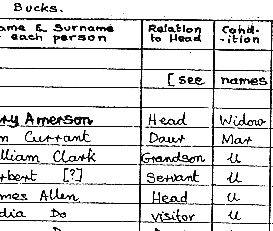 Bucks.
ame & Surname Relation Cond-
each person to Head ition
[ see names
ry Amerson Head Widow
m Currant Daur Mar
lliam Clark Grandson U
rbert [?] Servant U
mes Allen Head U
dia Do visitor U